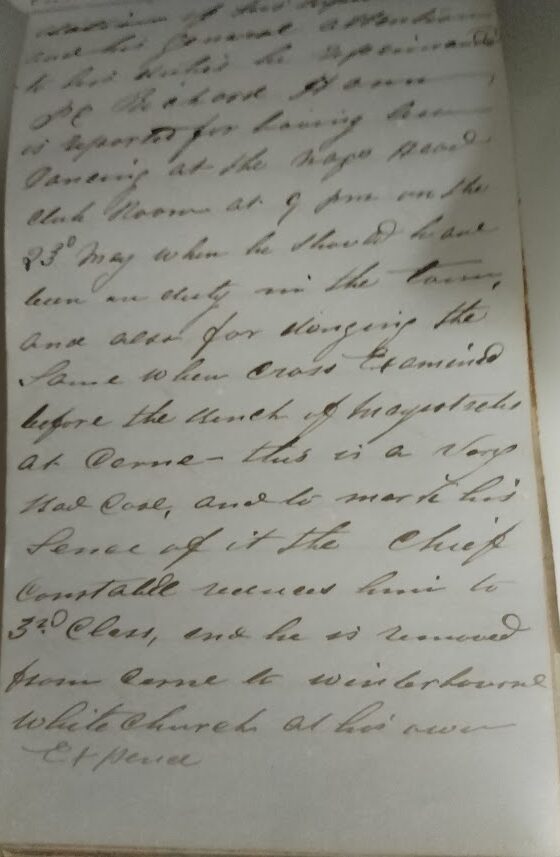 of his
and his general attention
to his duties he reprimands
PC Richard Hann
is reported for having been
dancing at the Nags Head
Club Room at 9 pm on the
23d May when he should have
been on duty in the Town,
and also for denying the
Same when Cross Examined
before the Bench of Magistrates
at Cerne - this is a Very
Bad Case, and to mark his
Sense of it the Chief
Constable reduces him to
3rd Class, and he is removed
from Cerne to Winterbourne
Whitechurch at his own
Expence